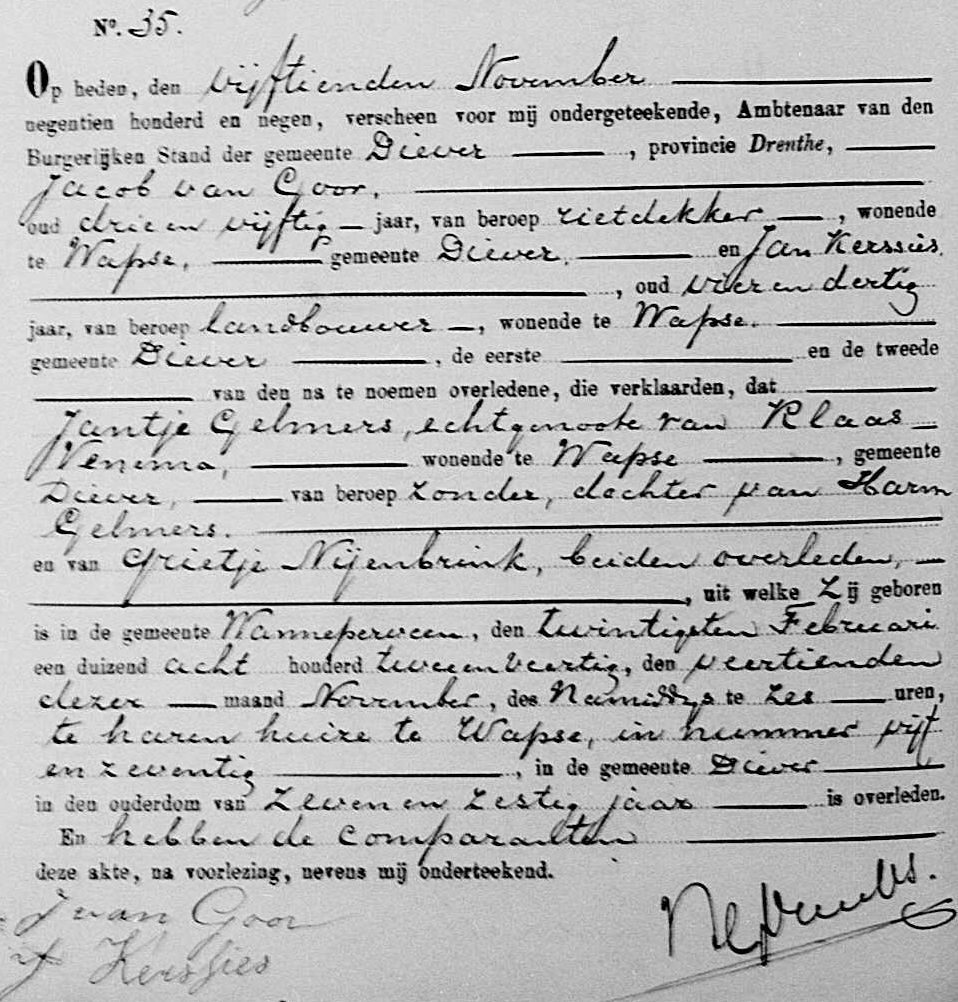 No. 35.
Op heden, den vijftienden November
negentien honderd en negen, verscheen voor mij ondergeteekende, Ambtenaar van den
Burgerlijken Stand der gemeente Diever, provincie Drenthe,
Jacob van Goor,
oud drie en vijftig jaar, van beroep rietdekker, wonende
te Wapse, gemeente Diever, en Jan Kerssies,
, oud vier en dertig
jaar, van beroep landbouwer, wonende te Wapse.
gemeente Diever, de eerste en de tweede
van den na te noemen overledene, die verklaarden, dat
Jantje Gelmers, echtgenoote van Klaas
Venema, wonende te Wapse, gemeente
Diever, van beroep zonder, dochter van Harm
Gelmers.
en van Grietje Nijenbrink, beiden overleden,
, uit welke Zij geboren
is in de gemeente Wanneperveen, den twintigsten Februari
een duizend acht honderd twee en veertig, den veertienden
dezer maand November, des Namidd gs te zes uren,
te haren huize te Wapse, in nummer vijf
en zeventig, in de gemeente Diever
in den ouderdom van zeven en zestig jaar is overleden.
En hebben de comparanten
deze akte, na voorlezing, nevens mij onderteekend.
J van Goor
J Kerssies